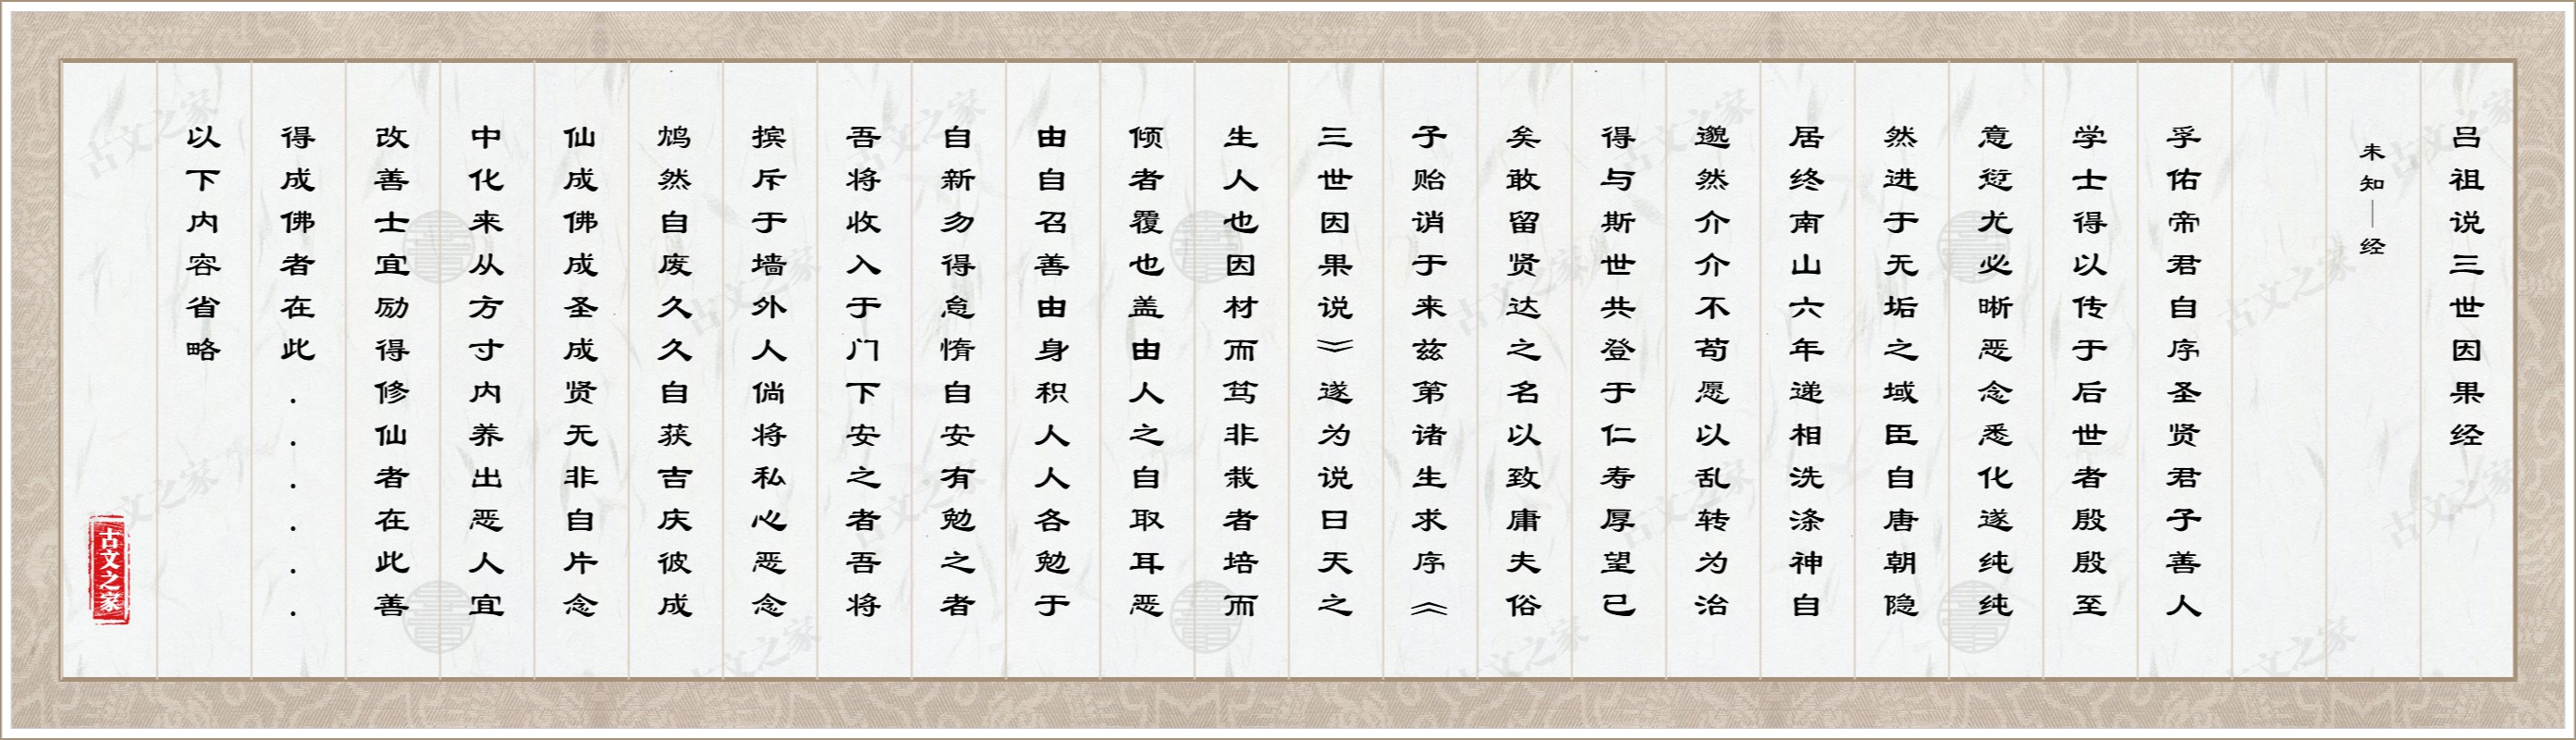 吕祖说三世因果经
未知｜经
孚佑帝君自序圣贤君子善人
学士得以传于后世者殷殷至
意愆尤必晰恶念悉化遂纯纯
然进于无垢之域臣自唐朝隐
居终南山六年递相洗涤神自
邈然介介不苟愿以乱转为治
得与斯世共登于仁寿厚望已
矣敢留贤达之名以致庸夫俗
子贻诮于来兹第诸生求序《
三世因果说》遂为说日天之
生人也因材而笃非栽者培而
倾者覆也盖由人之自取耳恶
由自召善由身积人人各勉于
自新勿得怠惰自安有勉之者
吾将收入于门下安之者吾将
摈斥于墙外人倘将私心恶念
鸩然自废久久自获吉庆彼成
仙成佛成圣成贤无非自片念
中化来从方寸内养出恶人宜
改善士宜励得修仙者在此善
得成佛者在此......
以下内容省略
古文之家